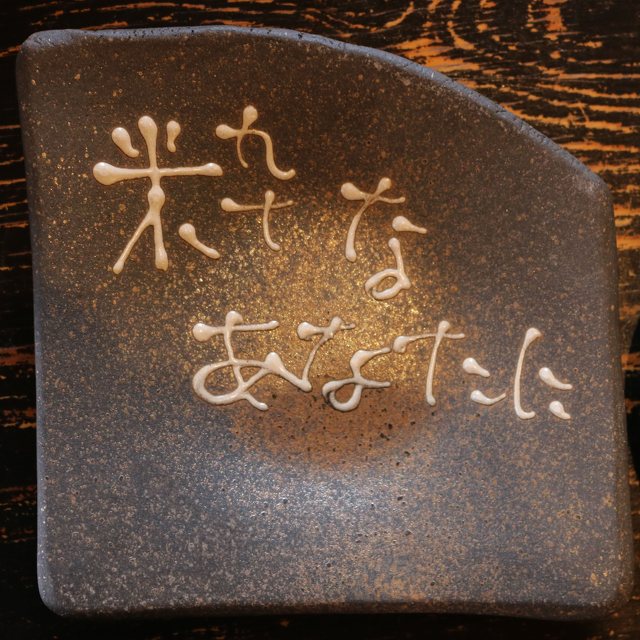 粋な
あなたに